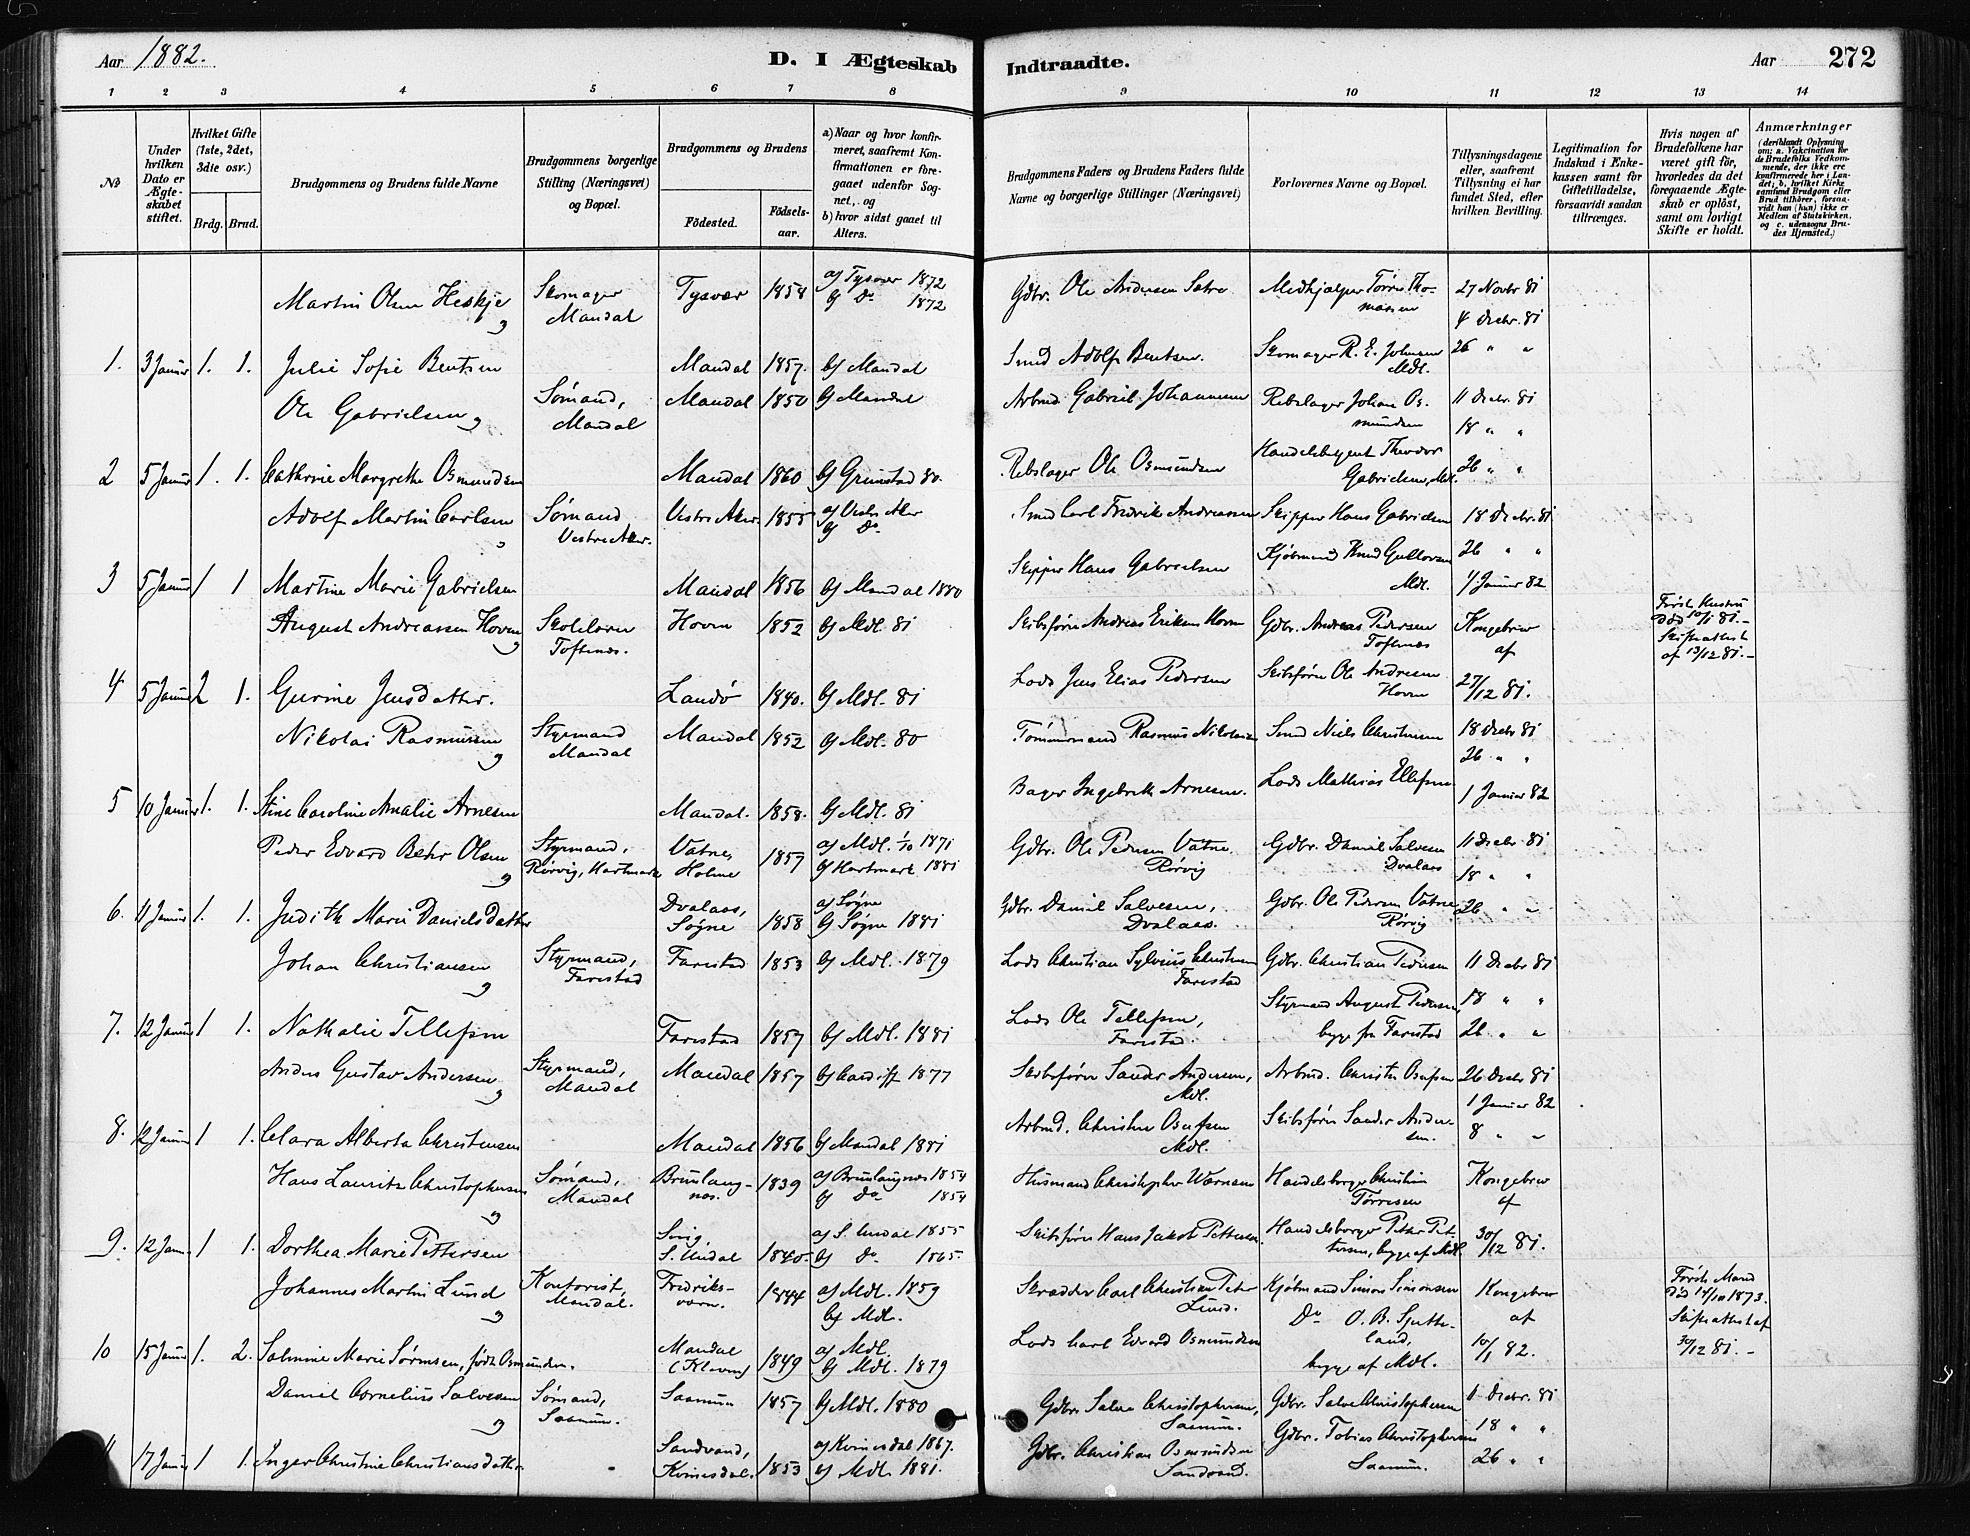 Aar 1882.
D. I Ægteskab Indtraadte.
Aar 272
1 2 3 4 5 6 7 8 9 10 11 12 13 14
№
Under hvilken Dato er Ægteskabet stiftet.
Hvilket Gifte (1ste, 2det, 3die osv.)
Brdg. Brud.
Brudgommens og Brudens fulde Navne
Brudgommens borgerlige Stilling (Næringsvei) og Bopæl.
Brudgommens og Brudens
Födested.
Födselsaar.
a) Naar og hvor konfirmeret, saafremt Konfirmationen er foregaaet udenfor Sognet, og
b) hvor sidst gaaet til Alters.
Brudgommens Faders og Brudens Faders fulde Navne og borgerlige Stillinger (Næringsvei)
Forlovernes Navne og Bopæl.
Tillysningsdagene eller, saafremt Tillysning ei har fundet Sted, efter hvilken Bevilling.
Legitimation for Indskud i Enkekassen samt for Giftetilladelse, forsaavidt saadan tiltrænges.
Hvis nogen af Brudefolkene har været gift för, hvorledes da det foregaaende Ægteskab er oplöst, samt om lovligt Skifte er holdt.
Anmærkninger (deriblandt Oplysning om: a. Vakcination for de Brudefolks Vedkommende, der ikke ere konfirmerede her i Landet; b. hvilket Kirkesamfund Brudgom eller Brud tilhörer, forsaavidt han (hun) ikke er Medlem af Statskirken, og c. udensogns Brudes Hjemsted.)
Martin Olsen Heskje Skomager Mandal Tysvær 1858 a) Tysvær 1872 b) Do 1872 Gdbr. Ole Andersen Sætre Medhjælper Tørres Thomassen 27 Novbr 81 4 Decbr. 81
1. 3 Januar 1. 1. Julie Sofie Bentsen Mandal 1857. b) Mandal Smed Adolf Bentsen. Skomager R. E. Johnsen Mdl. 26 " "
Ole Gabrielsen Sømand, Mandal Mandal 1850 b) Mandal Arbmd. Gabriel Johannesen Rebslager Johan Osmundsen 11 Decbr. 81 18 " "
2 5 Januar 1. 1. Cathrine Margrethe Osmundsen Mandal 1860 b) Grimstad 80. Rebslager Ole Osmundsen Handelsbetjent Theodor Gabrielsen, Mdl. 26 " "
Adolf Martin Carlsen Sømand Vestre Aker. Vestre Aker. 1855 a) Vestre Aker b) Do. Smed Carl Fredrik Andreassen Skipper Hans Gabrielsen 18 Decbr. 81
3 5 Januar 1 1 Martine Marie Gabrielsen Mandal 1856 b) Mandal 1880 Skipper Hans Gabrielsen Kjøbmand Knud Gullovsen Mdl. 26 " " 1 Januar 82
August Andreassen Hovm Toftenæs. Hovm 1852 b) Mdl. 81 Skibsfører Andreas Eriksen Hovm Gdbr. Andreas Pedersen Toftenæs Kongebrev af Første Hustru Død 10/1 81.- Skifteattest af 13/12 81.-
4 5 Januar 2 1. Gurine Jensdatter. Landø 1840. b) Mdl. 81 Lods Jens Elias Pedersen Skibsfører Ole Andresen Hovm 27/12 81.
Nikolai Rasmussen Styrmand Mandal Mandal 1852 b) Mdl. 80 Tømmermand Rasmus Nikolaisen Smed Niels Christensen 18 Decbr 81 26. " "
5 10 Januar 1. 1. Stine Caroline Amalie Arnesen Mandal. 1858. b) Mdl. 81 Bager Ingebrekt Arnesen. Lods Mathias Ellefsen 1 Januar 82
Peder Edvard Behr Olsen Styrmand, Rørvig, Hartmark Vatne, Holme 1857 a) Mdl. 1/10 1871 b) Hartmark 1881 Gdbr. Ole Pedersen Vatne. Rørvig Gdbr. Daniel Salvesen Dvalaas 11 Decbr 81 18 " "
6. 11 Januar 1. 1. Judith Marie Danielsdatter Dvalaas, Søgne 1858 a) Søgne b) Søgne 1881 Gdbr. Daniel Salvesen, Dvalaas. Gdbr. Ole Pedersen Vatne Rørvig 26 " "
Johan Christiansen Styrmand, Farestad Farestad 1853 b) Mdl. 1879 Lods Christian Sylvius Christensen Farestad Gdbr. Christian Pedersen 11 Decbr 81
7. 12 Januar 1 1. Nathalie Tellefsen Farestad 1857 b) Mdl. 1881 Lods Ole Tellefsen, Farestad. Styrmand August Pedersen, begge fra Farestad 18 " " 26 " "
Anders Gustav Andersen Styrmand, Mandal Mandal 1857 b) Cardiff 1877 Skibsfører Sander Andersen, Mdl. Arbmd. Christen Osufsen 26 Decbr 81 1 Januar 82
8. 12 Januar 1 1. Clara Alberta Christensen Mandal 1856 b) Mandal 1881 Arbmd. Christen Osufsen Mdl. Skibsfører Sander Andersen. 8 " "
Hans Lauritz Christophersen Sømand, Mandal Brunlangnæs. 1839 a) Brunlangnæs 1854 b) Do 1854 Husmand Christopher Wærnsen Handelsborger Christian Tørresen Kongebrev af
9. 12 Jan. 1 1. Dorthea Marie Pettersen S. Undal 1840. a) S. Undal 1855 b) Do 1865. Skibsfører Hans Jakob Pettersen Handelsborger Peter Pettersen, begge af Mdl. 30/12 81.
Johannes Martin Lund Kontorist, Mandal. Fredriksværn. 1844 a) Mdl. 1859 b) Mdl. Skrædder Carl Christian Peter Lund. Kjøbmand Simon Simonsen Kongebrev af Første Mand Død 14/10 1873. Skifteattest af
10 15 Januar 1. 2. Salmine Marie Sørensen, født Osmundsen. Mandal (Kleven) 1849 a) Mdl. b) Mdl. 1879 Lods Carl Edvard Osmundsen Do O. B. Spetteland, begge af Mdl. 10/1 82. 30/12 81.-
Daniel Cornelius Salvesen Sømand, Saanum. Saanum 1857 b) Mdl. 1880 Gdbr. Salve Christophersen, Saanum. Gdbr. Salve Christophersen 11 Decbr. 81 18 " "
11 17 Januar 1 1. Inger Christine Christiansdatter Sandvand, Kvinesdal. 1853 a) Kvinesdal 1867. b) Mdl. 1881. Gdbr. Christian Osmundsen Sandvand. Gdbr. Tobias Christophersen Saanum. 26 " "